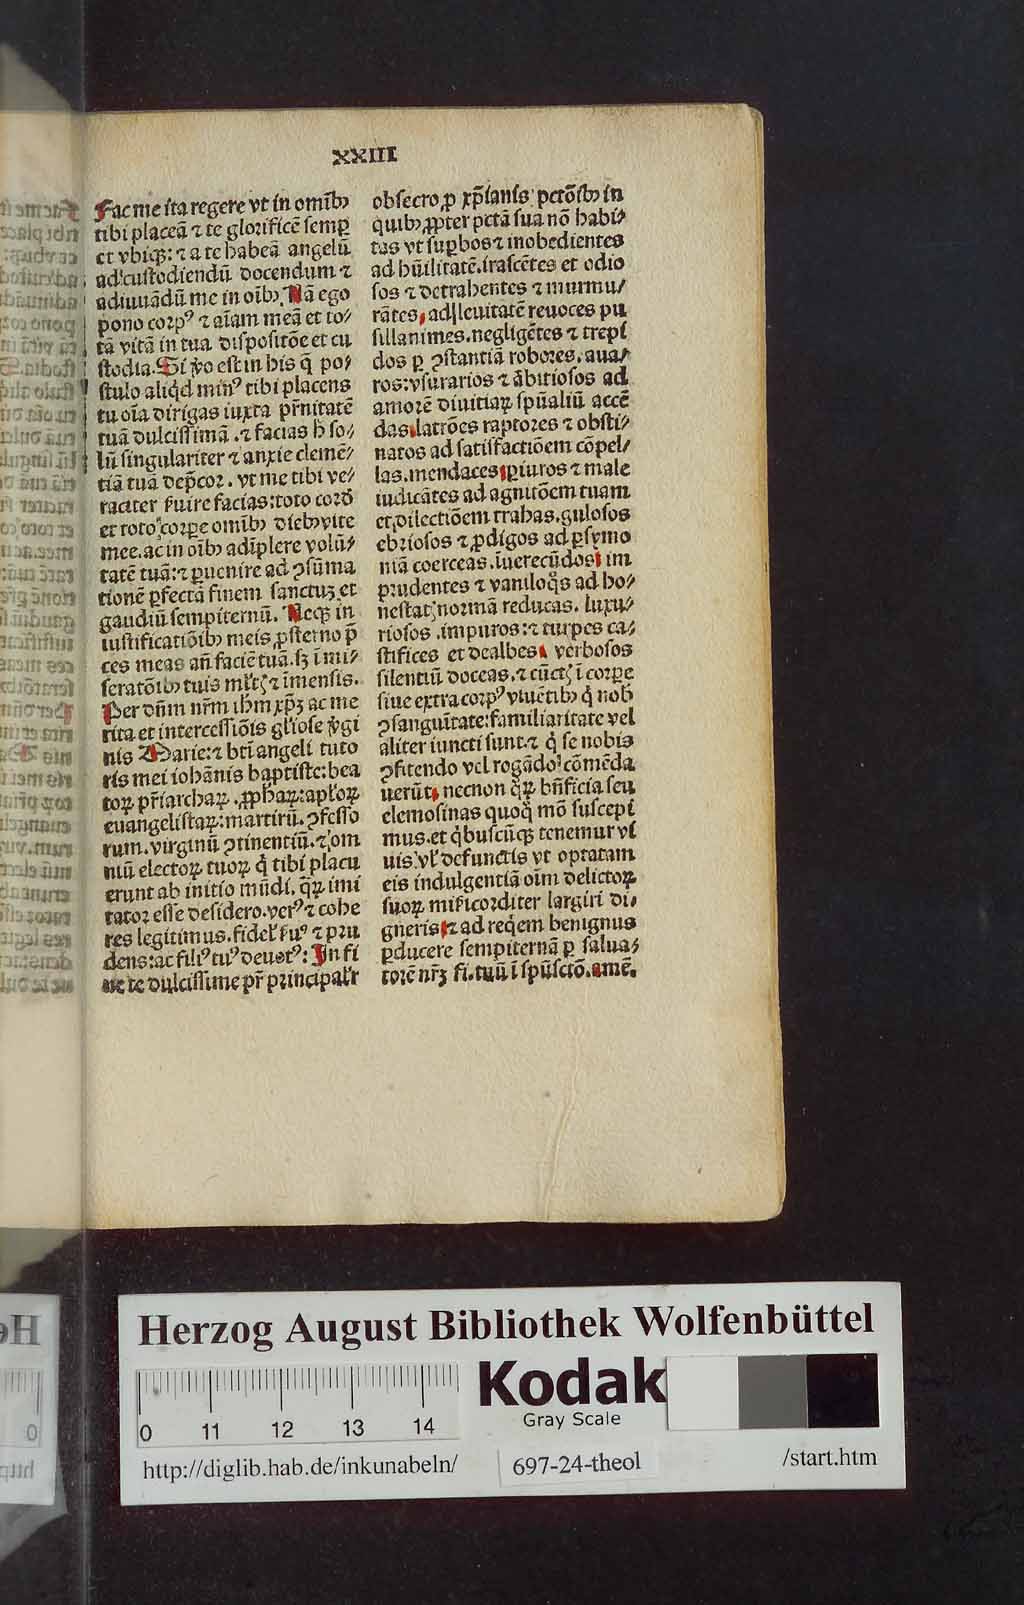 XXIII
Fac me ita regere vt in omĩbꝫ
tibi placeã ⁊ te glorificẽ semꝑ
et vbiqꝫ: ⁊ a te habeã angelũ
ad custodiendũ docendum ⁊
adiuuãdũ me in oĩbꝫ. Nã ego
pono corpꝰ ⁊ aĩam meã et to⸗
tã vitã in tua dispositõe et cu
stodia. Si ꝟo est in his q̃ po⸗
stulo aliq̇d minꝰ tibi placens
tu oĩa dirigas iuxta pr̃nitatẽ
tuã dulcissimã. ⁊ facias h̵ so⸗
lũ singulariter ⁊ anxie clemẽ⸗
tiã tuã dep̃cor. vt me tibi ve⸗
raciter ẜuire facias: toto cord̃
et toto corꝑe omĩbꝫ diebꝫ vite
mee. ac in oĩbꝫ adĩplere volũ⸗
tatẽ tuã: ⁊ ꝑuenire ad ꝯsũma
tionẽ ꝑfectã finem sanctuꝫ et
gaudiũ sempiternũ. Necqꝫ in
iustificatiõibꝫ meis ꝓsterno p̃
ces meas añ faciẽ tuã. sꝫ ĩ mi⸗
seratõibꝫ tuis mlt̃ꝭ ⁊ ĩmensis.
Per dñm nr̃m ihm̃ xp̃ꝫ ac me
rita et intercessiõis gl̃iose ꝟgi
nis Marie: ⁊ bt̃i angeli tuto
ris mei iohãnis baptiste: bea
toꝝ pr̃iarchaꝝ. ꝓphaꝝ: apl̃oꝝ
euangelistaꝝ: martirũ. ꝯfesso
rum. virginũ ꝯtinentiũ. ⁊ om
niũ electoꝝ tuoꝝ q̇ tibi placu
erunt ab initio mũdi. q̃ꝝ imi
tator esse desidero. verꝰ ⁊ cohe
res legitimus. fidel̃ ẜuꝰ ⁊ pru
dens: ac filiꝰ tuꝰ deuotꝰ: In fi
ne te dulcissime pr̃ principalr̃
obsecro ꝓ xp̃ianis pctõribꝫ in
quibꝫ ꝓpter pctã sua nõ habi⸗
tas vt suꝑbos ⁊ inobedientes
ad hũilitatẽ. irascẽtes et odio
sos ⁊ detrahentes ⁊ murmu⸗
rãtes, ad leuitatẽ reuoces pu
sillanimes. negligẽtes ⁊ trepi
dos ꝑ ꝯstantiã robores. aua⸗
ros: vsurarios ⁊ ãbitiosos ad
amorẽ diuitiaꝝ spũaliũ accẽ
das. latrões raptores ⁊ obsti⸗
natos ad satisfactiõem cõpel⸗
las. mendaces ꝑiuros ⁊ male
iudicãtes ad agnitõem tuam
et dilectiõem trahas. gulosos
ebriosos ⁊ ꝓdigos ad ꝑsymo
niã coerceas. ĩuerecũdos im
prudentes ⁊ vaniloq̊s ad ho⸗
nestatꝭ normã reducas. luxu⸗
riosos. impuros: ⁊ turpes ca⸗
stifices et dealbes. verbosos
silentiũ doceas. ⁊ cũctꝭ ĩ corꝑe
siue extra corpꝰ viuẽtibꝫ q̇ nob̃
ꝯsanguĩtate: familiaritate vel
aliter iuncti sunt. ⁊ q̇ se nobis
ꝯfitendo vel rogãdo cõmẽda
uerũt. necnon q̃ꝝ bñficia seu
elemosinas quoq̇ mõ suscepi
mus. et q̇buscũqꝫ tenemur vi
uis vl̃ defunctis vt optatam
eis indulgentiã oĩm delictoꝝ
suoꝝ miẜicorditer largiri di⸗
gneris ⁊ ad req̇em benignus
ꝑducere sempiternã ꝑ salua⸗
torẽ nr̃ꝫ fi. tuũ ĩ spũsctõ. amẽ.
Herzog August Bibliothek Wolfenbüttel
0 11 12 13 14
Kodak
Gray Scale
http://diglib.hab.de/inkunabeln/
697-24-theol
/start.htm